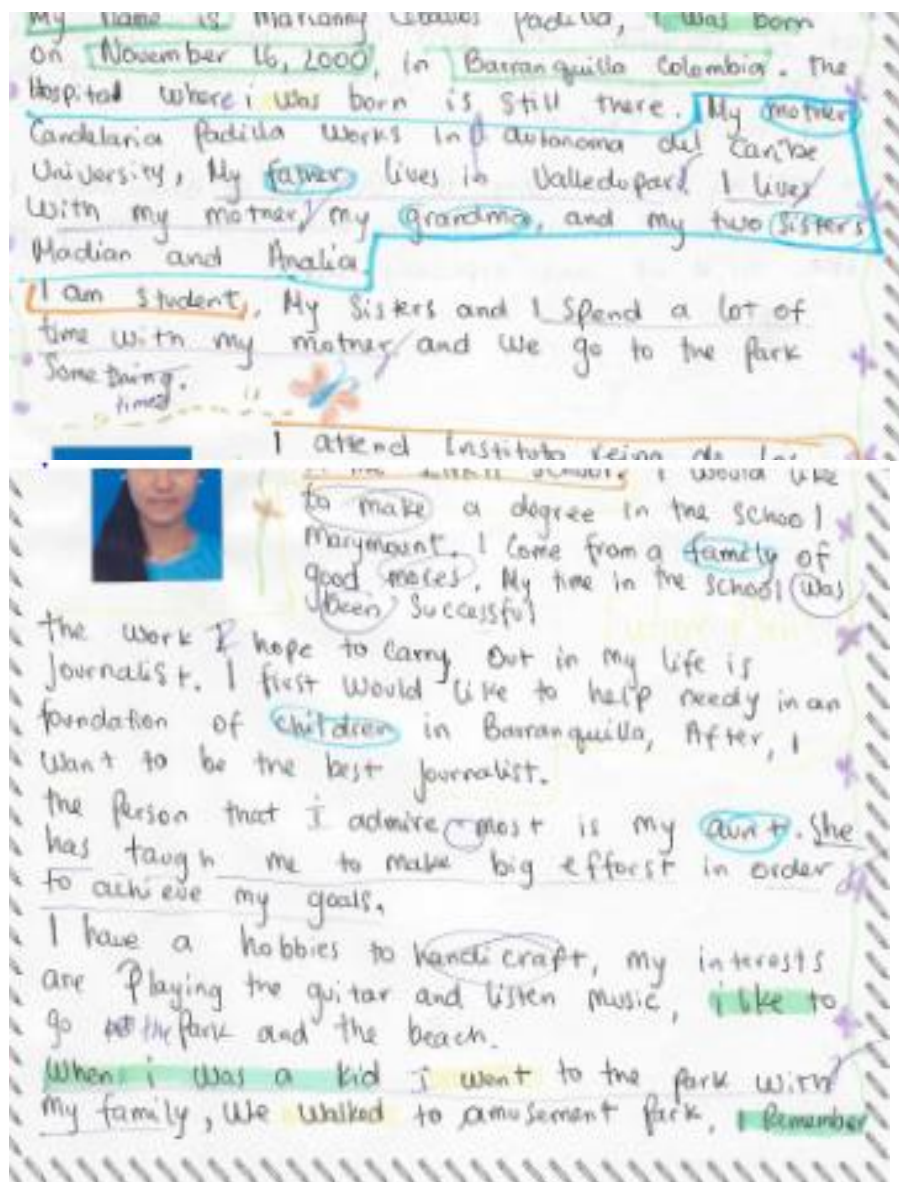 My name is Marianny Ceballos Padilla, I was born
on November 16, 2000, in Barranquilla Colombia. The
Hospital where i was born is still there. My mother
Candelaria Padilla works in autonoma del Caribe
University, My father lives in Valledopar. I lives
with my mother, my grandma, and my two sisters
Madian and Analia.
I am student, My Sisters and I spend a lot of
time with my mother and we go to the park
Some thing.
times
I attend Instituto reino de los
school. I would like
to make a degree in the school
Marymount. I come from a family of
good mores. My time in the school was
been successful
the work I hope to carry out in my life is
Journalist. I first would like to help needy in an
foundation of children in Barranquilla, After, I
want to be the best journalist.
the person that i admire most is my aunt. She
has taugh me to make big efforst in order
to achieve my goals.
I have a hobbies to handicraft, my interests
are Playing the guitar and listen music, i like to
go the Park and the beach.
When i was a kid i went to the park with
my family, we walked to amusement park. I Remember